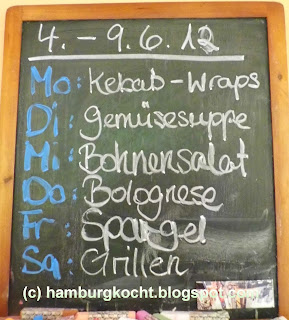 4. - 9.6.12
Mo: Kebab-Wraps
Di: Gemüsesuppe
Mi: Bohnensalat
Do: Bolognese
Fr: Spargel
Sa: Grillen
(c) hamburgkocht.blogspot.com